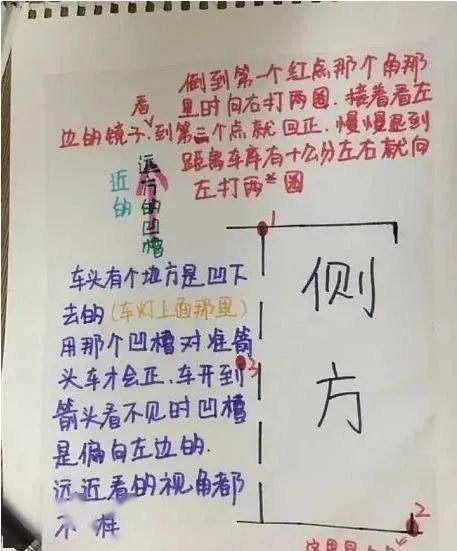 倒到第一个红点那个角那
里时向右打两圈.接着看左
看
边的镜子.到第三个点就回正.慢慢退到
距离车库有十公分左右就向
左打两圈
近的
远方的凹槽
1
车头有个地方是凹下
去的(车灯上面那里)
用那个凹槽对准箭
头车才会正.车开到
箭头看不见时凹槽
是偏向左边的.
远近看的视角都
不样
侧方
3
2
这里是